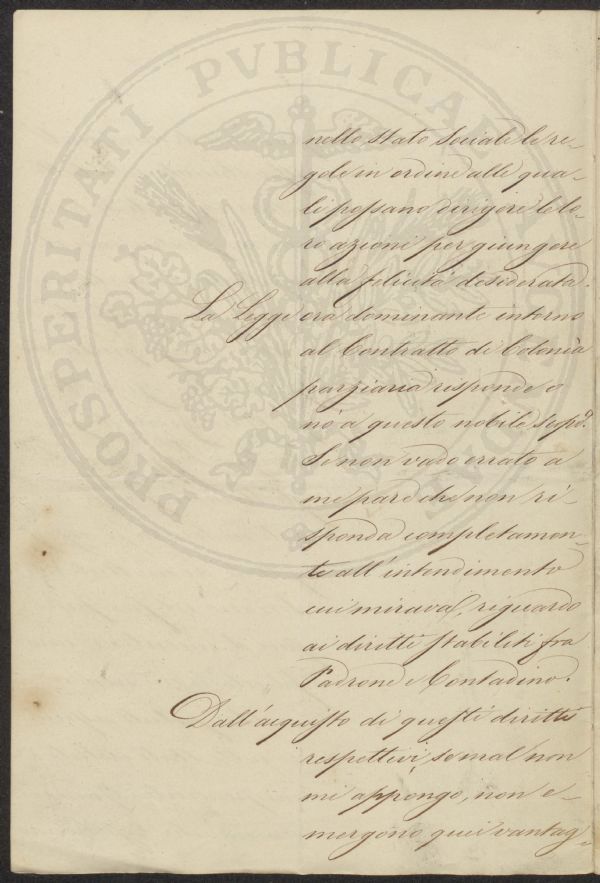 PROSPERITATI PVBLICAE
nello stato Sociale le re-
gole in ordine alle qua-
li possano dirigere le lo-
ro azioni per giungere
alla felicità desiderata.
La Legge ora dominante intorno
al Contratto di Colonìa
parziaria risponde o
nò a questo nobile scopo?
Se non vado errato a
me pare che non ri-
sponda completamen-
te all'intendimento
cui mirava, riguardo
ai diritti stabiliti fra
Padrone e Contadino.
Dall'acquisto di questi diritti
respettivi, se mal non
mi appongo, non e-
mergono quei vantag-